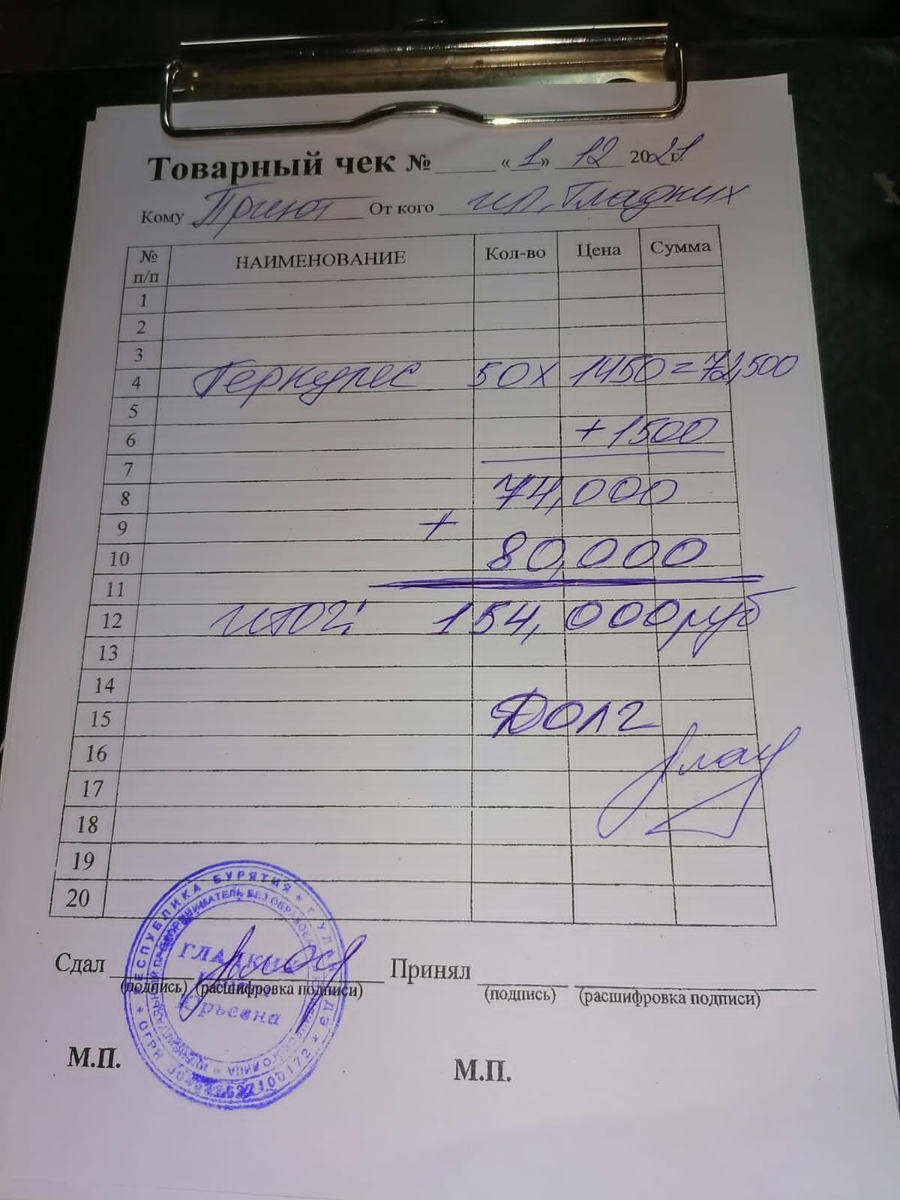 Товарный чек № « 1 » 12 2021 г.
Кому Приют От кого ИП. Гладких
№ п/п НАИМЕНОВАНИЕ Кол-во Цена Сумма
1
2
3
4 Геркулес 50 х 1450 = 72,500
5
6 + 1500
7
8 74,000
9 +
10 80,000
11
12 итог: 154,000 руб
13
14
15 Долг
16
17
18
19
20
Сдал Принял
(подпись) (расшифровка подписи) (подпись) (расшифровка подписи)
М.П. М.П.
РЕСПУБЛИКА БУРЯТИЯ * г. УЛАН-УДЭ *
ГЛАДКИХ
Юрьевна
ОГРН